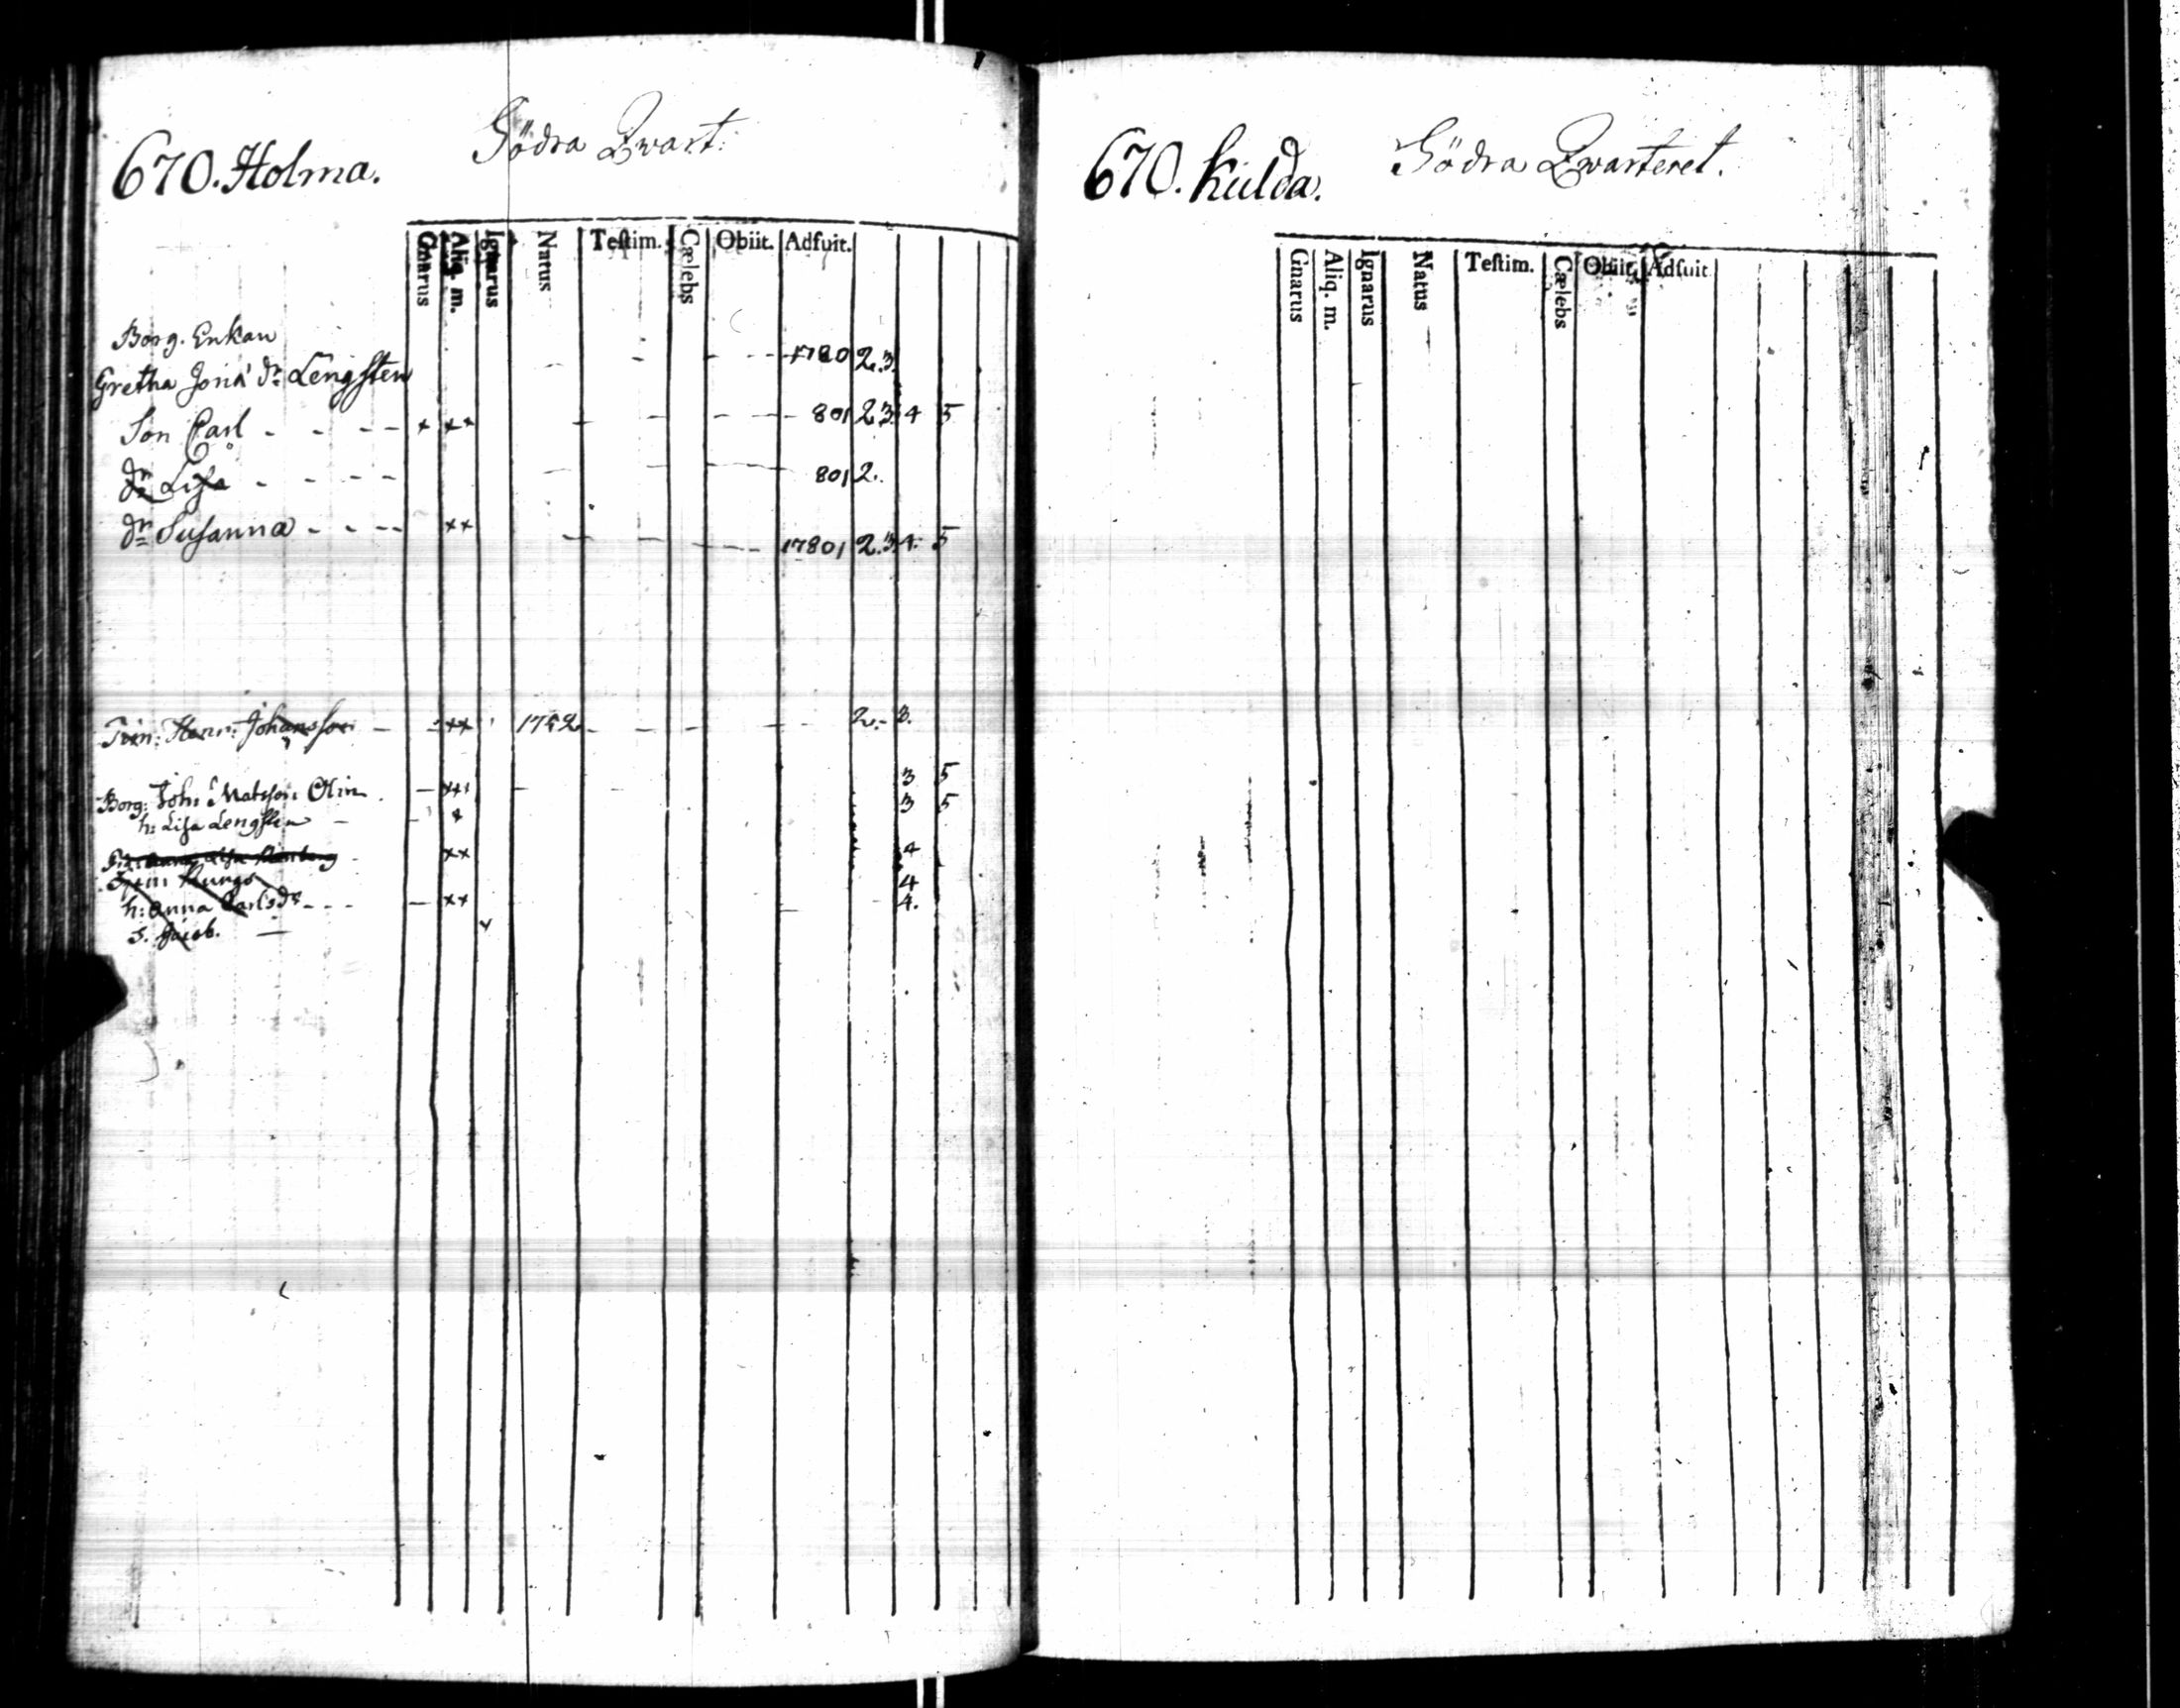 670. Holma. Södra Qvart:
Gnarus Aliq. m. Ignarus Natus Teſtim. Cælebs Obiit. Adfuit.
Borg. Enkan
Gretha Jona dr Lengsten - - - - 1780 2. 3.
Son Carl - - - - × ×× - - - - - 801 2 3. 4 5
dr Lisa - - - - - - - - 801 2.
dr Susanna - - - - ×× - - - - - 17801 2. 3. 4. 5
Henr: Johansson - - ×× 1752 - - - - - - 2. - 3.
Borg: Joh: Matsson Olin - - 3 5
h: Lisa Lengsten - - 3 5
×× 4
4
h: Anna Carlsdr - - - - ×× - 4.
S. Jacob. -
670. Kulda. Södra Qvarteret.
Gnarus Aliq. m. Ignarus Natus Teſtim. Cælebs Obiit. Adfuit